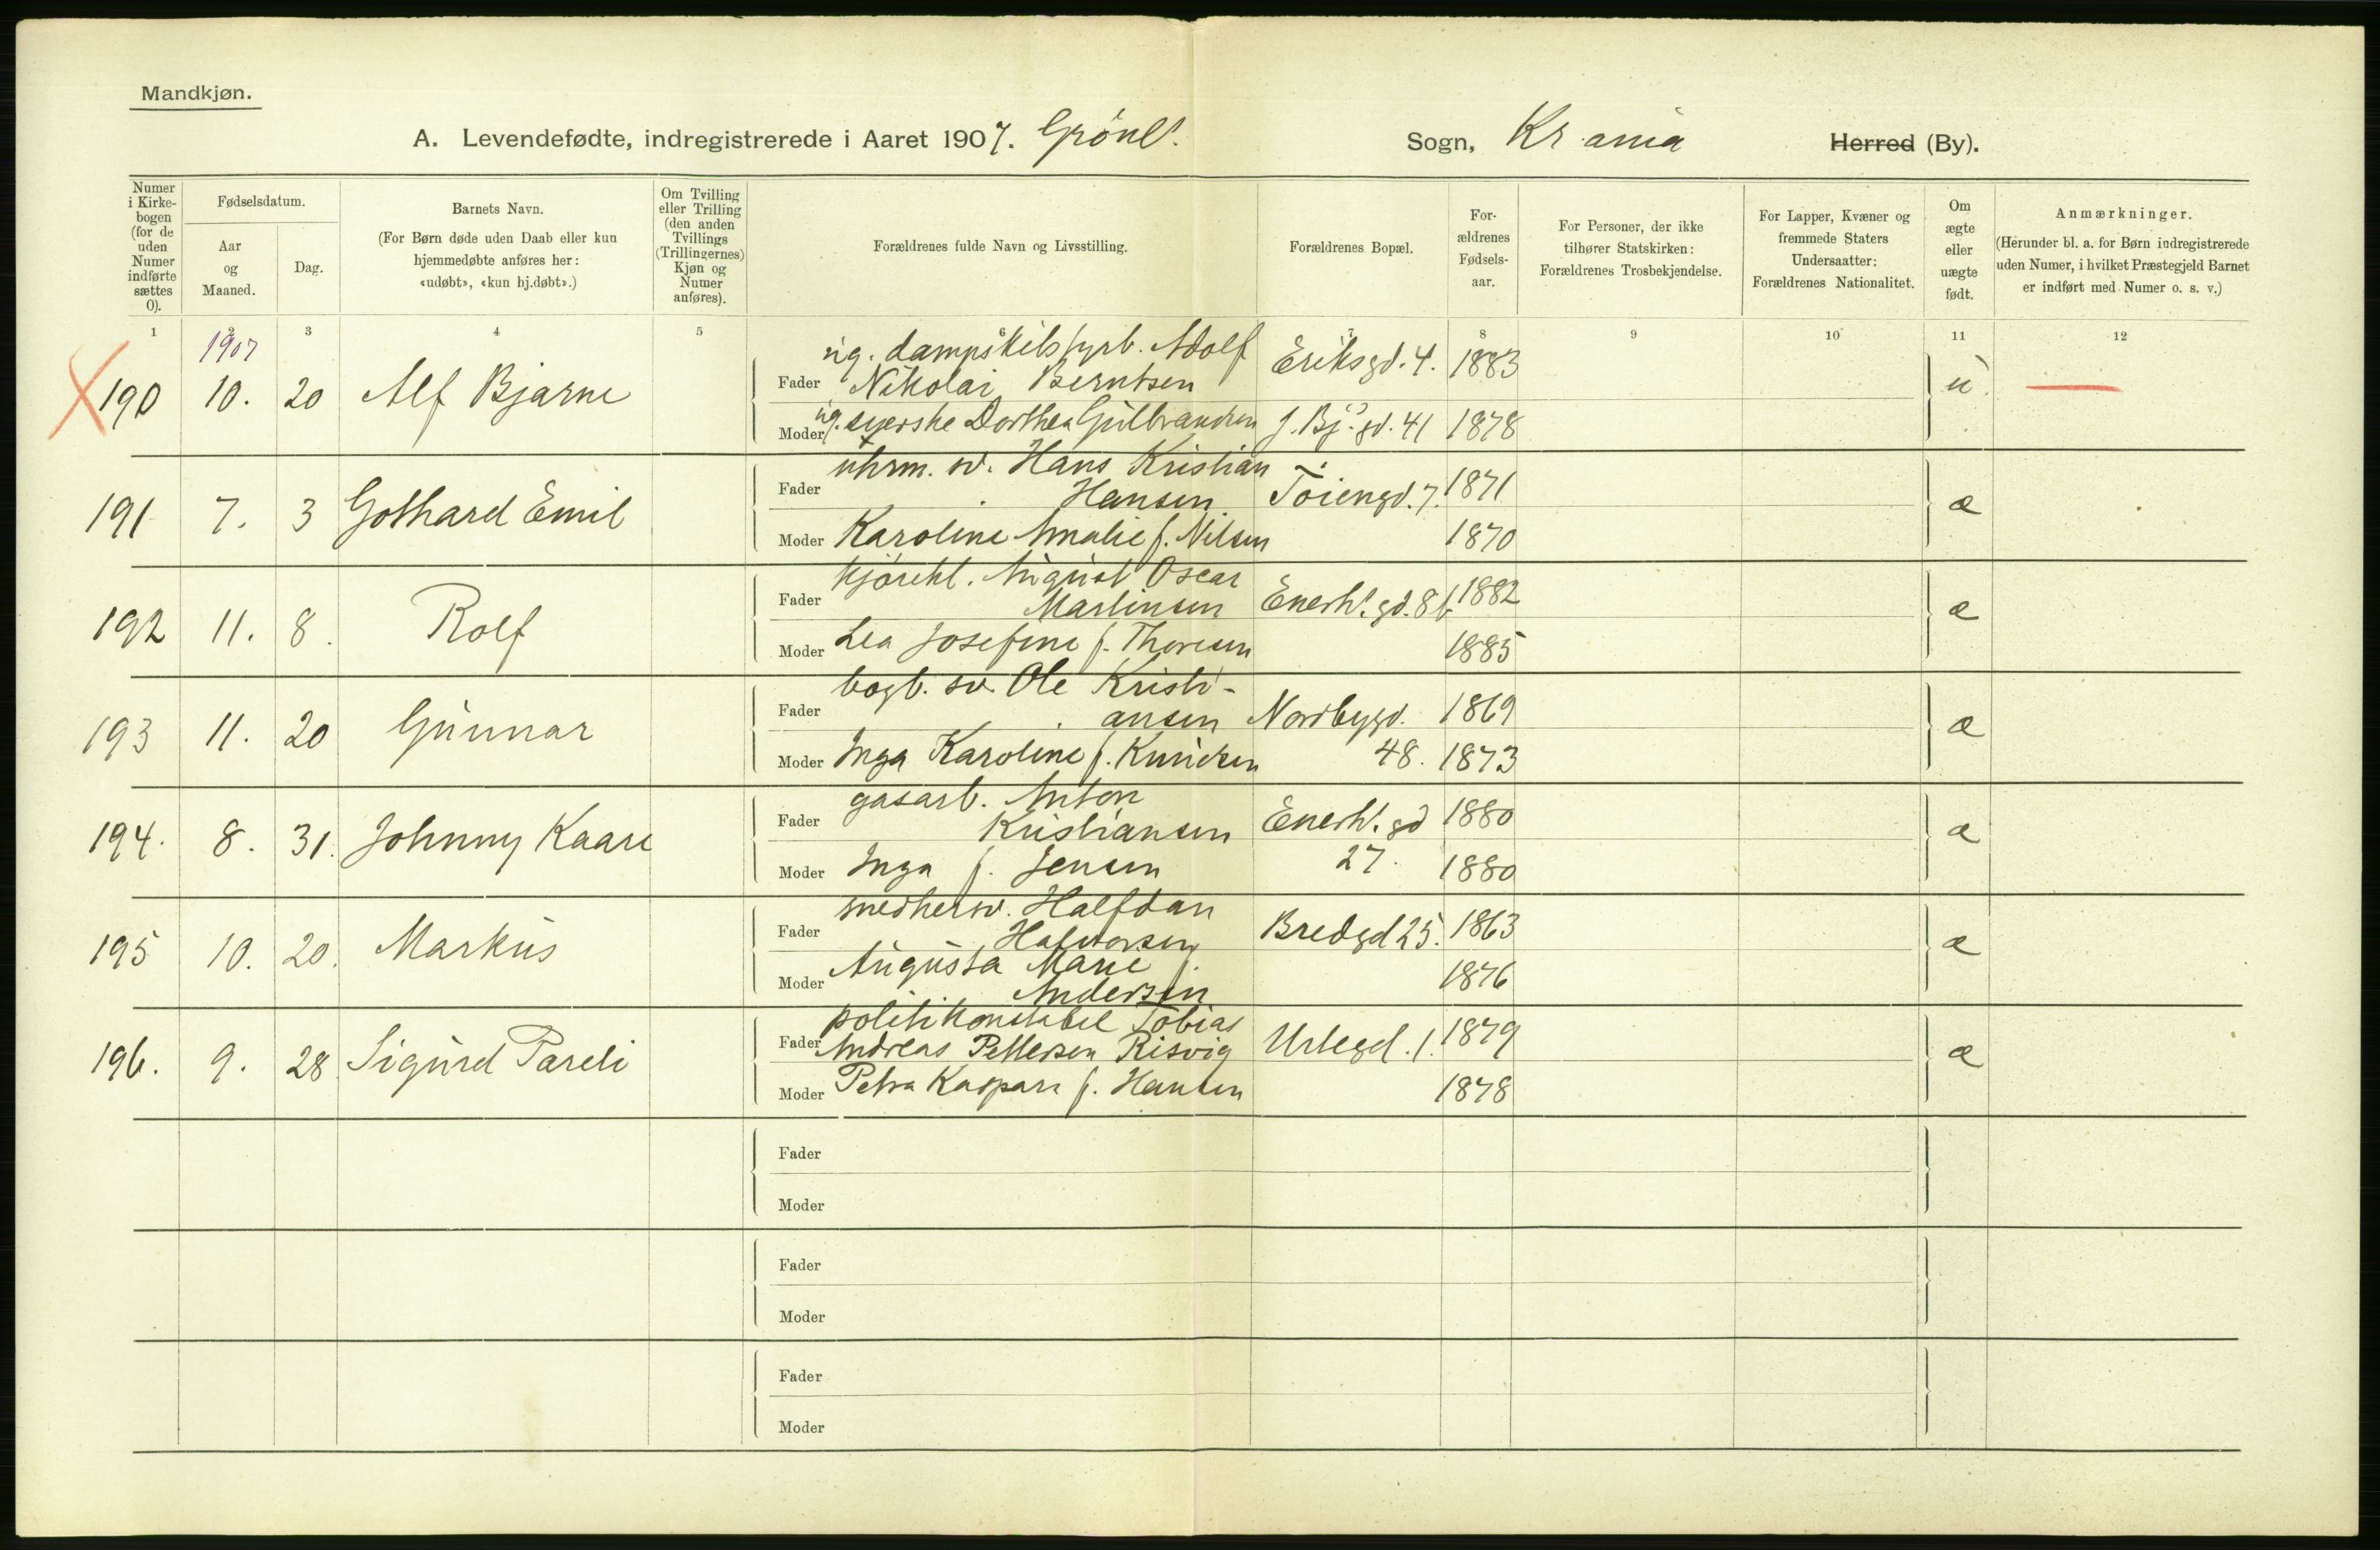 Mandkjøn.
A. Levendefødte, indregistrerede i Aaret 1907. Grönl. Sogn, Kr.ania Herred (By).
Numer i Kirkebogen (for de uden Numer indførte sættes 0).
Fødselsdatum.
Aar og Maaned.
Dag.
Barnets Navn.
(For Børn døde uden Daab eller kun hjemmedøbte anføres her: «udøbt», «kun hj.døbt».)
Om Tvilling eller Trilling (den anden Tvillings (Trillingernes) Kjøn og Numer anføres).
Forældrenes fulde Navn og Livsstilling.
Forældrenes Bopæl.
Forældrenes Fødselsaar.
For Personer, der ikke tilhører Statskirken: Forældrenes Trosbekjendelse.
For Lapper, Kvæner og fremmede Staters Undersaatter: Forældrenes Nationalitet.
Om ægte eller uægte født.
Anmærkninger.
(Herunder bl. a. for Børn indregistrerede uden Numer, i hvilket Præstegjeld Barnet er indført med Numer o. s. v.)
1 2 3 4 5 6 7 8 9 10 11 12
1907
190 10. 20 Alf Bjarne
Fader ug. dampskibsfyrb. Adolf
Nikolai Berntsen Eriksgd. 4. 1883 u.
Moder ug. syerske Dorthea Gulbrandsen J. Bj. gd. 41 1878
191 7. 3 Gothard Emil
Fader uhrm. sv. Hans Kristian
Hansen. Töiengd. 7. 1871 æ
Moder Karoline Amalie f. Nilsen 1870
192 11. 8. Rolf
Fader kjörekl. August Oscar
Martinsen Enerh. gd. 8 b 1882 æ
Moder Lea Josefine f. Thoresen 1885
193 11. 20 Gunnar
Fader bogb. sv. Ole Kristi-
ansen Nordbygd. 1869 æ
Moder Inga Karoline f. Knudsen 48. 1873
194. 8. 31. Johnny Kaare
Fader gasarb. Anton
Kristiansen Enerh. gd 1880 æ
Moder Inga f. Jensen 27. 1880
195 10. 20. Markus
Fader snedkersv. Halfdan
Halvorsen Bredgd 25. 1863 æ
Moder Augusta Marie f.
Andersen 1876
196. 9. 28 Sigurd Pareli
Fader politikonstabel Tobias
Andreas Pettersen Risvig Urtegd. 1. 1879 æ
Moder Petra Kaspara f. Hansen 1878
Fader
Moder
Fader
Moder
Fader
Moder